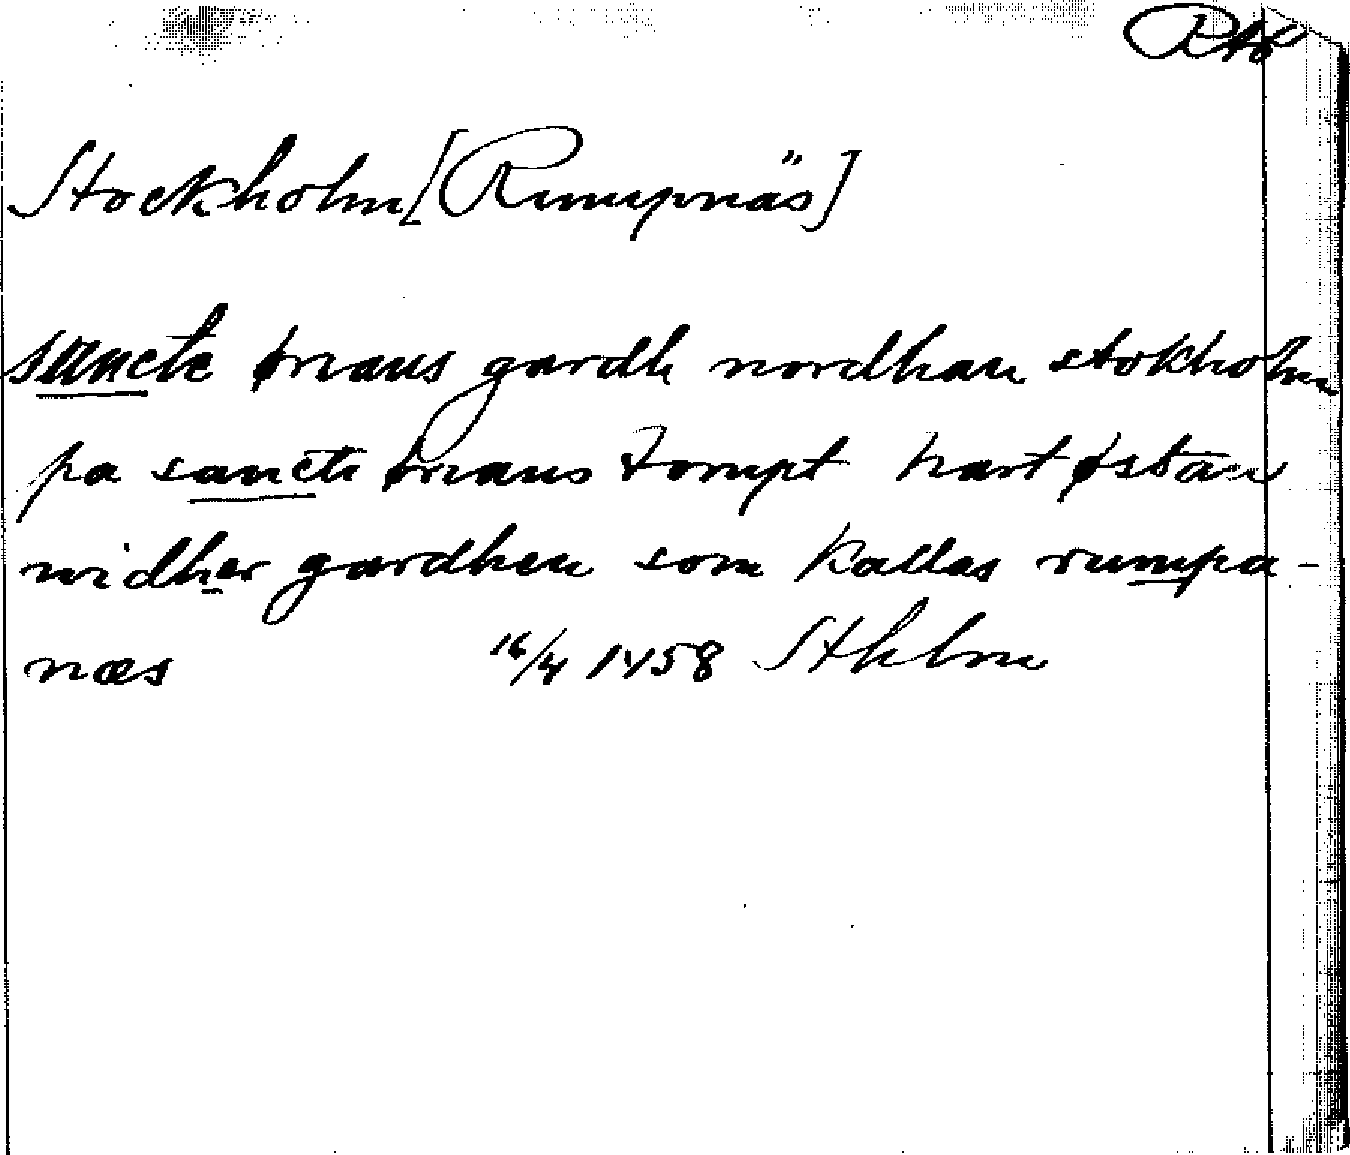 Stockholm [Rumpnäs]
sancte øriaus gardh nordhan stokholm
pa sancte øriaus tompt hart østan
widher gardhen som kallas rumpa-
næs 16/4 1458 Sthlm